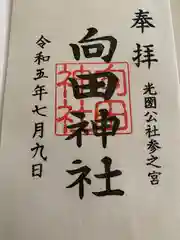 奉拝
光圀公社参之宮
向田神社
向田
神社
令和五年七月九日